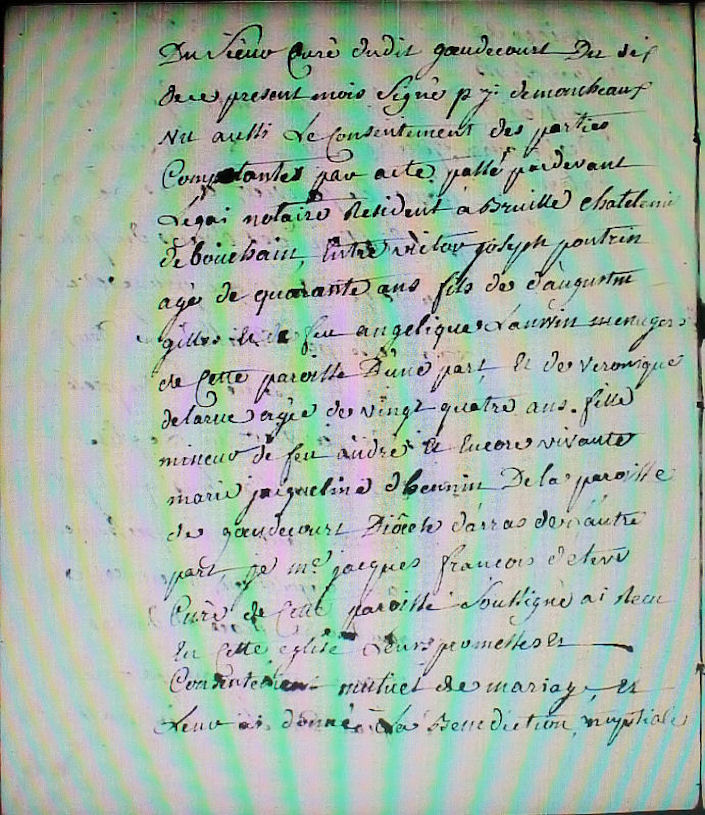 Du sieur curé dudit goeudecourt Du six
de ce present mois signé p j demonbeaux
vu aussi Le Consentement des parties
Comp tantes par acte passé pardevant
Legai notaire Resident a Bruille chatelenie
de bouchain, Entre victor joseph poutrin
agé de quarante ans fils de d'augustin
gilles et de feu angelique Lauwin menagers
de Cette paroisse D'une part Et de veronique
delarue agée de vingt quatre ans fille
mineur de feu andré et Encore vivante
marie jacqueline d'hennin De la paroisse
de goeudecourt Diocèse d'arras de l'autre
part, je me jacques francois
Curé de Cette paroisse soussigné ai Recu
En Cette eglise Leurs promesses Et
Consentement mutuel de mariage et
Leur ai donné La Benediction nuptiale